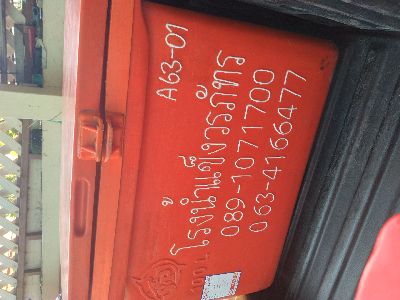 A63-01
100 L
โรงน้ำแข็งวรภัทร
089-1071700
063-4166477